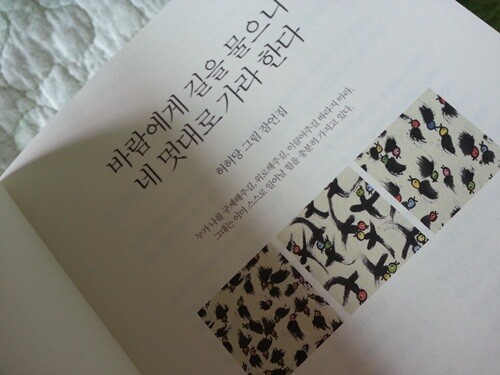 바람에게 길을 물으니
네 멋대로 가라 한다
허허당 그림 잠언집
누가 나를 구제해주길, 위로해주길, 이끌어주길 바라지 마라.
그대는 이미 스스로 일어날 힘을 충분히 가지고 있다.